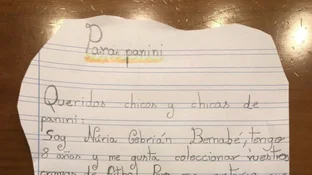 Para panini
Queridos chicos y chicas de
panini:
Soy Núria Cebrián Bernabé, tengo
8 años y me gusta coleccionar vuestros
cromos de